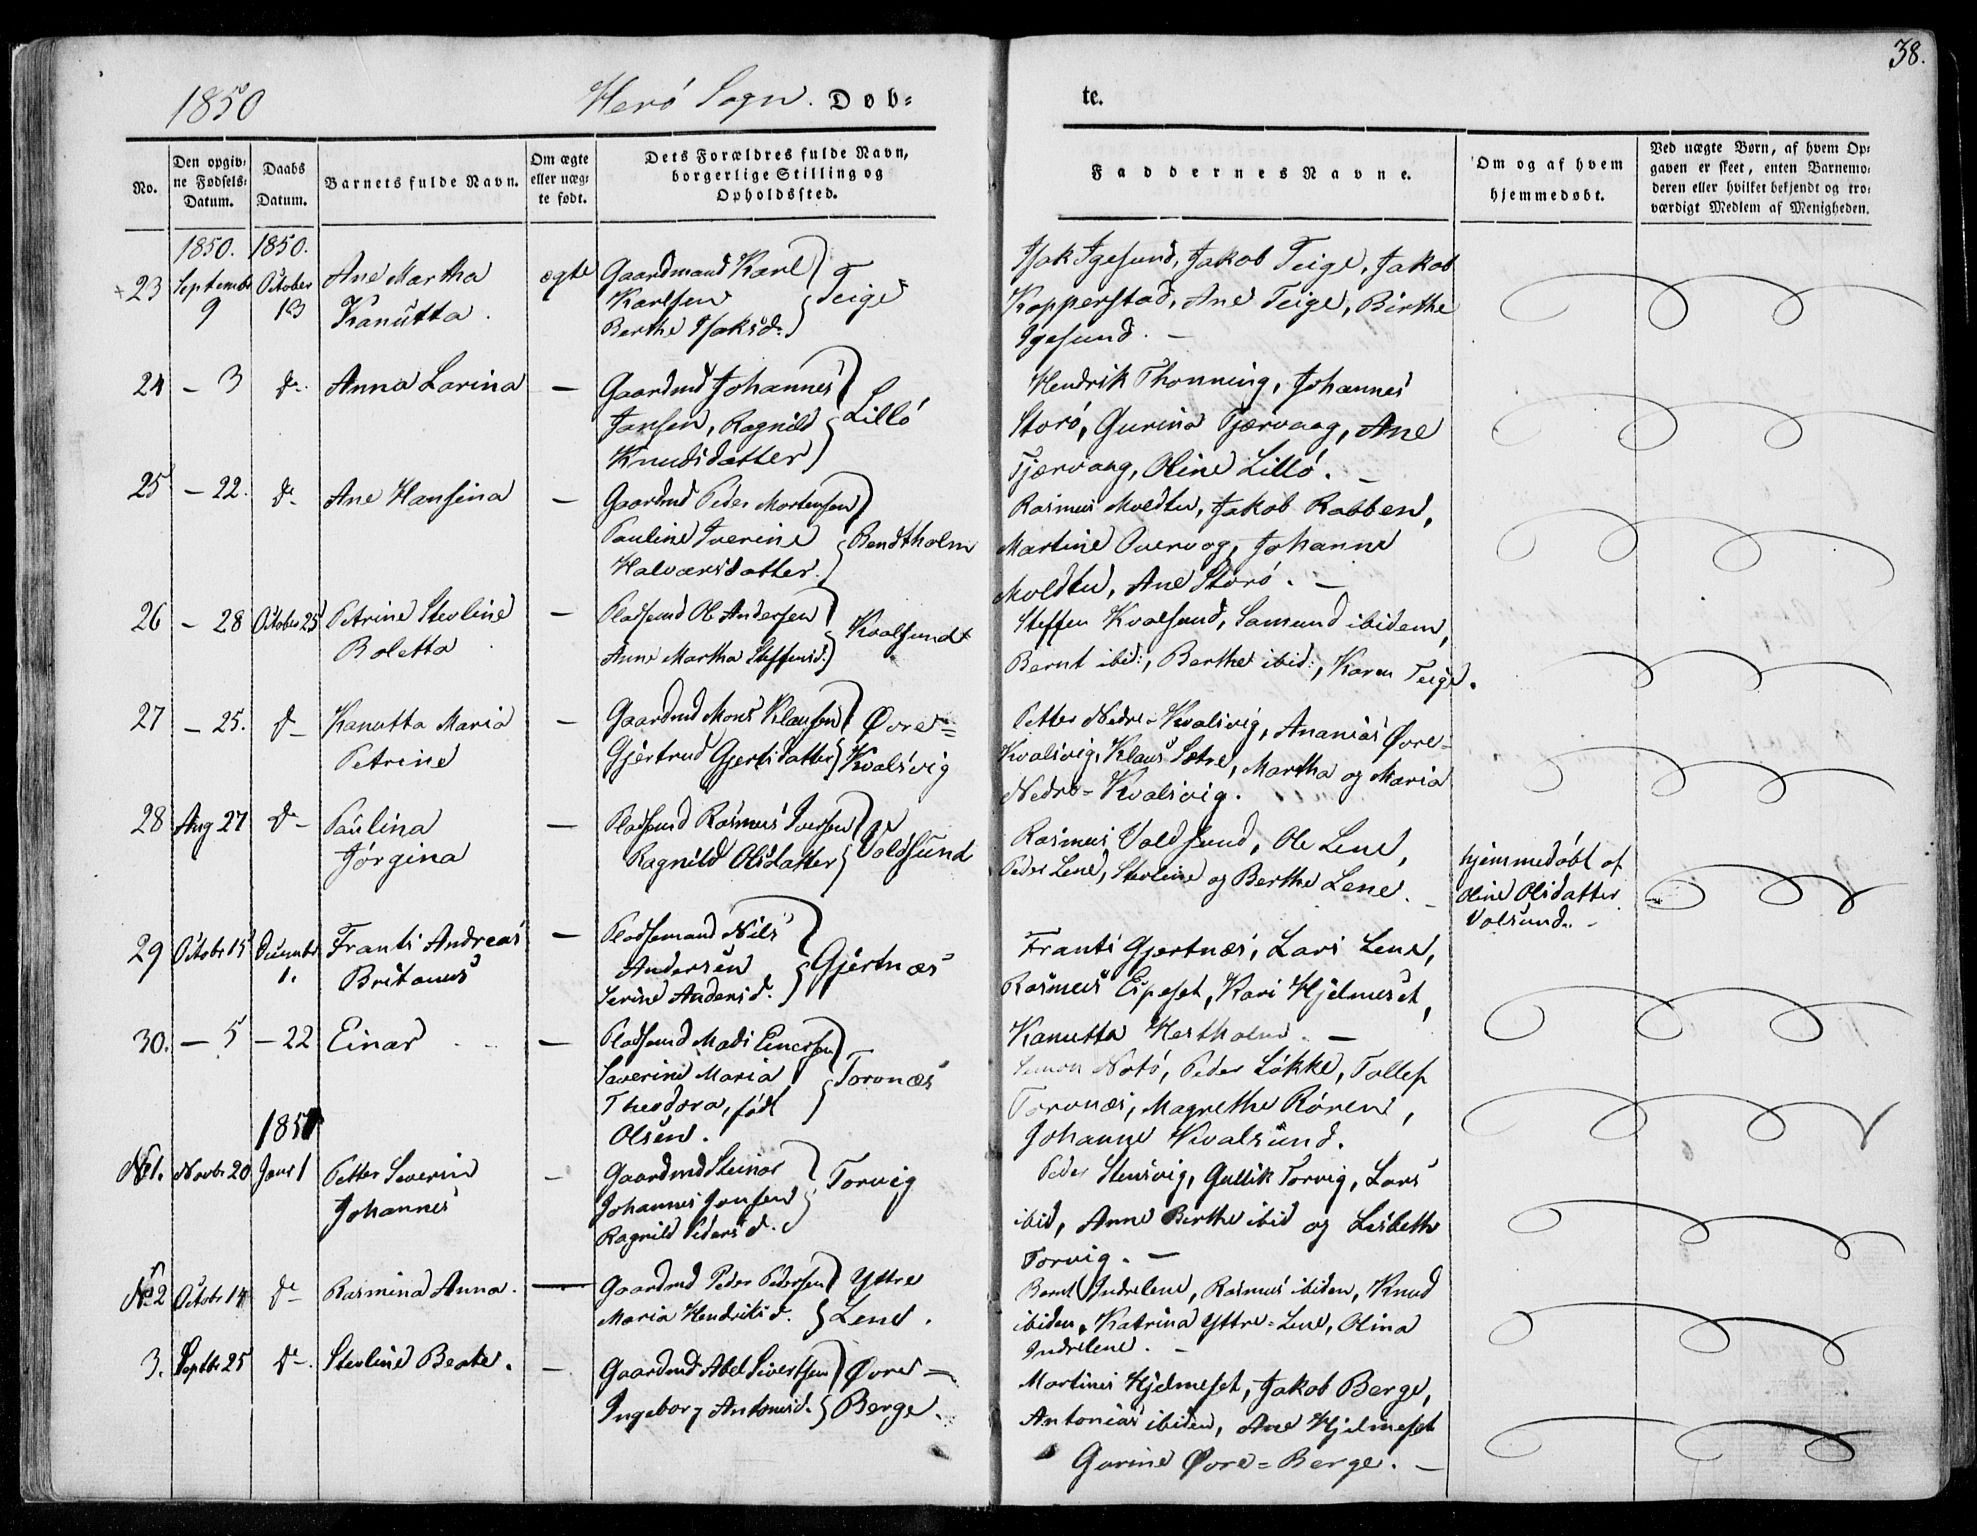 38.
1850
Herö Sogn. Døb-
te.
No.
Den opgiv-
ne Fødsels-
Datum.
Daabs
Datum.
Barnets fulde Navn.
Om ægte
eller uæg-
te født.
Dets Forældres fulde Navn,
borgerlige Stilling og
Opholdssted.
Faddernes Navne.
Om og af hvem
hjemmedøbt.
Ved uægte Børn, af hvem Op-
gaven er skeet, enten Barnemo-
deren eller hvilket bekjendt og tro-
værdigt Medlem af Menigheden.
1850. 1850.
23 Septembr October Ane Martha ægte Gaardmand Karl
9 13 Kanutta. Karlsen Teige
Berthe Isaksd.
Isak Igesund, Jakob Teige, Jakob
Kopperstad, Ane Teige, Birthe
Igesund. —
24 – 3 do Anna Larina — Gaardmd Johannes
Jansen, Ragnild Lillö
Knudsdatter
Hendrik Thonning, Johannes
Storö, Gurina Tjærvaag, Ane
Tjærvaag, Oline Lillö. —
25 – 22. do Ane Hansina — Gaardmd Peder Mortensen
Pauline Iverine Bendtholm
Halvorsdatter.
Rasmus Moldtu, Jakob Rabben,
Martine Overvog, Johanne
Moldtu, Ane Storö. —
26 – 28 October 25 Petrine Stevline — Pladsmd Ole Andersen
Boletta Anne Martha Steffensd. Kvalsund
Steffen Kvalsund, Samund ibidem,
Bernt ibid:, Berthe ibid:, Karen Teige.
27 – 25. do Kanutta Maria — Gaardmd Mons Klausen Øvre-
Petrine Gjertrud Gjertsdatter Kvalsvig
Petter Nedre-Kvalsvig, Ananias Øvre-
Kvalsvig, Klaus Sætre, Martha og Maria
Nedre-Kvalsvig.
28 Aug 27 do Paulina — Pladsmd Rasmus Iversen
Jörgina Ragnild Olsdatter Voldsund
Rasmus Voldsund, Ole Lene,
Peder Lene, Stevline og Berthe Lene. —
hjemmedöbt af
Oline Olsdatter
Volsund. –
29 Octobr 15 Decembr Frants Andreas — Pladsemand Nils
1. Britanus Andersen Gjertnæs
Serine Andersd.
Frants Gjertnæs, Lars Lene,
Rasmus Espeset, Kari Hjelmeset,
Kanutta Hestholm. —
30. – 5 – 22 Einar — Pladsmd Mads Einersen
Saverine Maria Torvnæs
Theodora, född
Olsen.
Simon Notö, Peder Lökke, Tollef
Torvnæs, Magrethe Rören,
Johanne Kvalsund.
1851
No 1. Novbr 20 Janr 1 Petter Severin — Gaardmd Steinar
Johannes Johannes Jonsen Torvig
Ragnild Pedersd.
Peder Stensvig, Gullik Torvig, Lars
ibid, Anne Berthe ibid og Lisbeth
Torvig. —
No 2 Octobr 14 do Rasmina Anna. — Gaardmd Peder Pedersen Yttre
Maria Hendriksd. Lene.
Bernt Indrelene, Rasmus ibiden, Knud
ibiden, Katrina Yttre-Lene, Olina
Indrelene. —
3. Septbr 25 do Stevline Beate. — Gaardmd Abel Sivertsen Øvre-
Ingeborg Antonisd. Berge.
Martines Hjelmeset, Jakob Berge,
Antonias ibiden, Ane Hjelmeset
Gurine Øvre-Berge. —